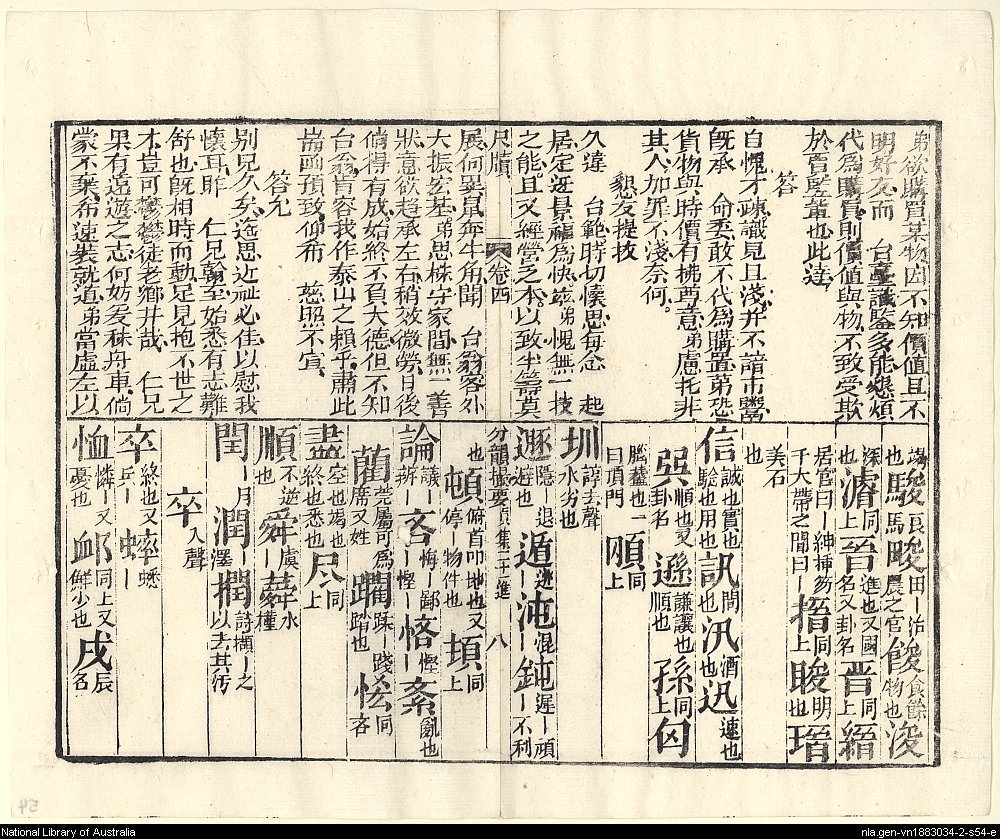 弟欲購買某物因不知價值且不
明好反而　台臺識鑒多能懇煩
代為購買則價值與物不致受欺
於賣鑒輩也此達
答
自愧才疎識見且淺并不諳市鬻
既承　命委敢不代為購置第恐
貨物與時價有拂尊意弟慮托非
其人加罪不淺奈何
懇友提技
久違　台範時切懷思每念　起
居定迓景福為快茲弟愧無一技
之能且又經營之本以致半籌莫
尺牘　卷四
展何異鼠奔牛角聞　台翁客外
大振宏基弟思株守家間無一善
狀意欲趋承左右稍效微勞日後
倘得有成始終不負大德但不知
台翁肯容我作泰山之賴乎肅此
耑函預致仰希　慈照不宣
答允
别兄久矣遥思近祉必佳以慰我
懷耳昨　仁兄翰至始悉有志難
舒也既相時而動足見抱不世之
才豈可鬱鬱徒老鄉井哉　仁兄
果有遠遊之志何妨爰秣舟車倘
蒙不棄希速裝就道弟當虛左以
端也 駿良馬也 畯田丨治農之官 餕食餘物也 浚
深也 濬同上 晉進也又國名又卦名 晋同上 縉
居官曰丨紳挿笏于大帶之間曰丨 搢同上 晙明也 瑨
美石也
信誠也實也騐也用也 訊問也 汛洒也 迅速也
巺順也又卦名 遜謙讓也順也 孫同上 囟
腦蓋也一曰頂門 顖同上
圳諄去聲水劣也
遯隱丨退避也 遁逃丨 沌混丨 鈍遲丨頑丨不利
分韻撮要 貞集二十二進 八
也 頓俯首叩地也又停丨物件也 頧同上
論議丨辨丨 吝悔丨鄙丨慳 悋慳丨 紊亂也
藺莞屬可為席又姓 躙蹂踐踏也 恡同吝
盡空也竭也終也悉也 尽同上
順不逆也 舜虞丨 蕣水丨菱槿
閏丨月 潤丨澤 撋詩擷丨之以去其污
卒入聲
卒終也又兵丨 蟀蟋丨
恤憐丨又憂也 䘏同上又鮮少也 戌辰名
National Library of Australia
nla.gen-vn1883034-2-s54-e